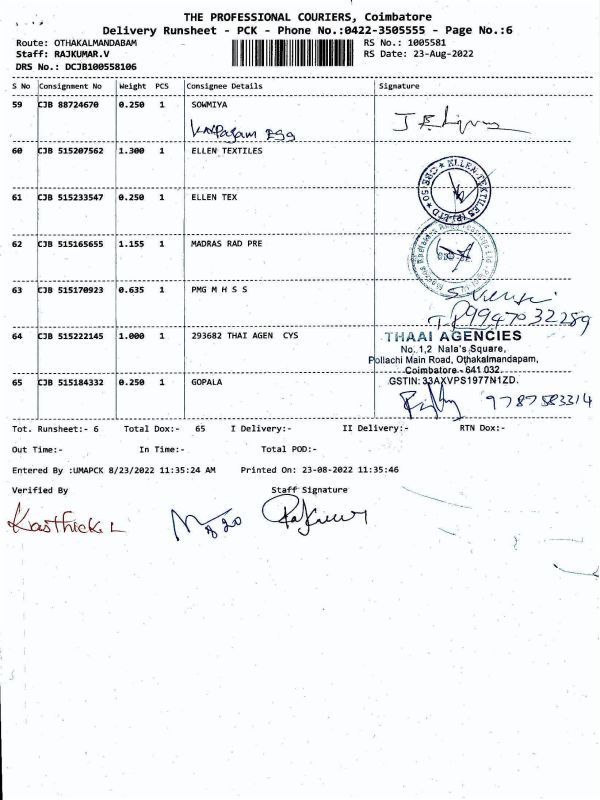 THE PROFESSIONAL COURIERS, Coimbatore
Delivery Runsheet - PCK - Phone No.:0422-3505555 - Page No.:6
Route: OTHAKALMANDABAM RS No.: 1005581
Staff: RAJKUMAR.V RS Date: 23-Aug-2022
DRS No.: DCJB100558106
S No Consignment No Weight PCS Consignee Details Signature
59 CJB 88724670 0.250 1 SOWMIYA
60 CJB 515207562 1.300 1 ELLEN TEXTILES
ELLEN TEXTILES (P) LTD
61 CJB 515233547 0.250 1 ELLEN TEX
62 CJB 515165655 1.155 1 MADRAS RAD PRE
63 CJB 515170923 0.635 1 PMG M H S S
9947032289
64 CJB 515222145 1.000 1 293682 THAI AGEN CYS
THAAI AGENCIES
No. 1,2 Nala's Square,
Pollachi Main Road, Othakalmandapam,
Coimbatore - 641 032.
GSTIN: 33AXVPS1977N1ZD.
65 CJB 515184332 0.250 1 GOPALA
9787583314
Tot. Runsheet:- 6 Total Dox:- 65 I Delivery:- II Delivery:- RTN Dox:-
Out Time:- In Time:- Total POD:-
Entered By :UMAPCK 8/23/2022 11:35:24 AM Printed On: 23-08-2022 11:35:46
Verified By Staff Signature
Kasthick. L